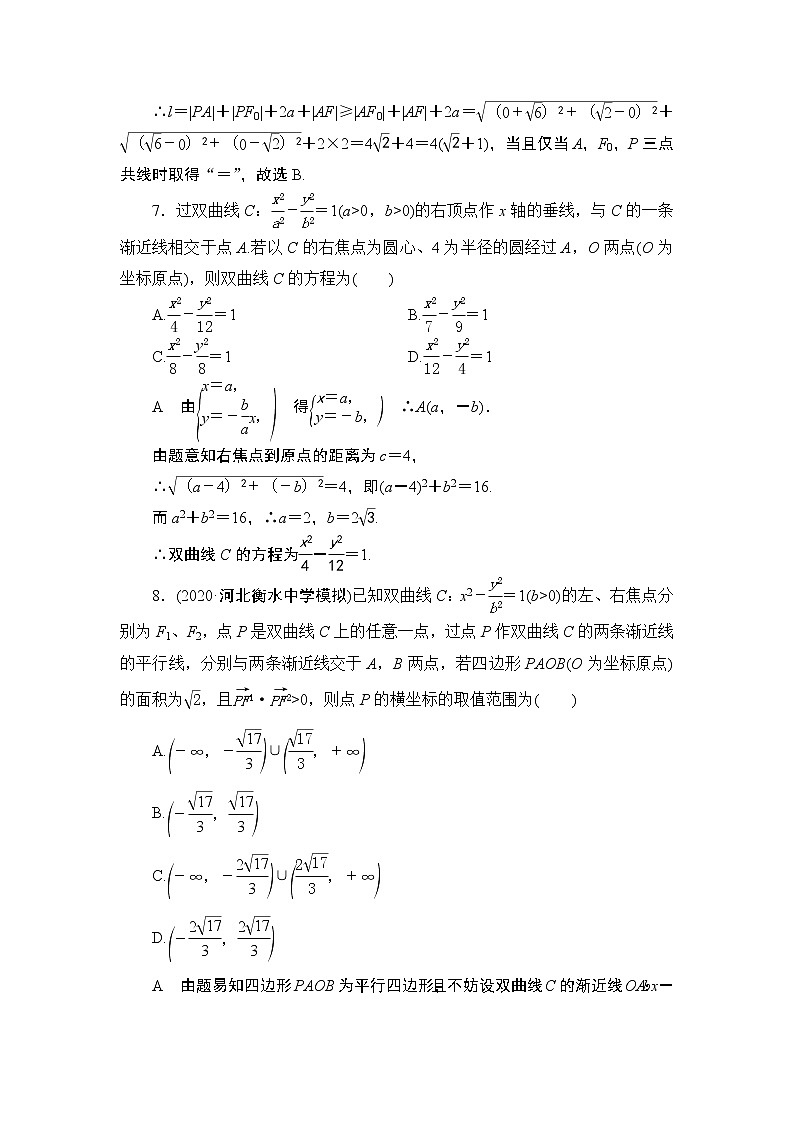 ∴l=|PA|+|PF₀|+2a+|AF|≥|AF₀|+|AF|+2a=√(（0+√6）²+（√2-0）²)+
√(（√6-0）²+（0-√2）²)+2×2=4√2+4=4(√2+1)，当且仅当 A，F₀，P 三点
共线时取得“=”，故选 B.
7．过双曲线 C：x²/a²-y²/b²=1(a>0，b>0)的右顶点作 x 轴的垂线，与 C 的一条
渐近线相交于点 A.若以 C 的右焦点为圆心、4 为半径的圆经过 A，O 两点(O 为
坐标原点)，则双曲线 C 的方程为(　　)
A.x²/4-y²/12=1　B.x²/7-y²/9=1
C.x²/8-y²/8=1　D.x²/12-y²/4=1
A　由{x=a，y=-b/a x，)　得{x=a，y=-b，)　∴A(a，-b).
由题意知右焦点到原点的距离为 c=4，
∴√(（a-4）²+（-b）²)=4，即(a-4)²+b²=16.
而 a²+b²=16，∴a=2，b=2√3.
∴双曲线 C 的方程为x²/4-y²/12=1.
8．(2020·河北衡水中学模拟)已知双曲线 C：x²-y²/b²=1(b>0)的左、右焦点分
别为 F₁、F₂，点 P 是双曲线 C 上的任意一点，过点 P 作双曲线 C 的两条渐近线
的平行线，分别与两条渐近线交于 A，B 两点，若四边形 PAOB(O 为坐标原点)
的面积为√2，且PF₁→·PF₂→>0，则点 P 的横坐标的取值范围为(　　)
A.(-∞，-√17/3)∪(√17/3，+∞)
B.(-√17/3，√17/3)
C.(-∞，-2√17/3)∪(2√17/3，+∞)
D.(-2√17/3，2√17/3)
A　由题易知四边形 PAOB 为平行四边形，且不妨设双曲线 C 的渐近线 OA：bx-